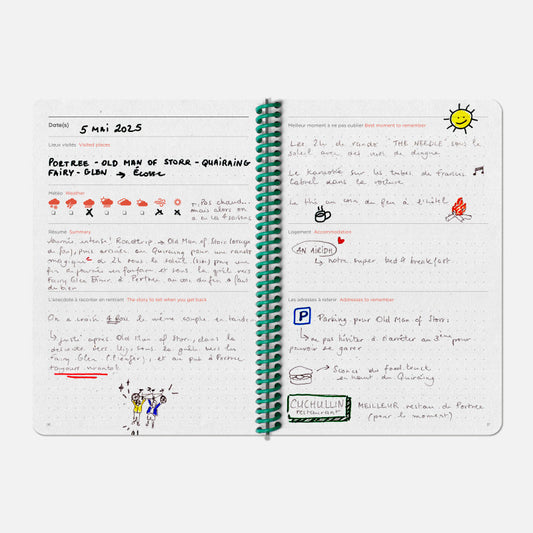 Date(s) 5 MAI 2025
Lieux visités Visited places
PORTREE - OLD MAN OF STORR - QUAIRAING
FAIRY - GLEN → Écosse
Météo Weather
Pas chaud...
mais alors on
a eu la 4 saisons
Résumé Summary
Journée intense! Roadtrip → Old Man of Storr (coup
du fou), puis arrivée au Quiraing pour une rando
magique de 2h sous le soleil pour une
fin de journée en fanfare et sous la grêle vers
Fairy Glen. Dîner à Portree, au coin du feu à faire
du bien
L'anecdote à raconter en rentrant The story to tell when you get back
On a croisé 4 fois le même couple en tandem
↳ juste après Old Man of Storr, dans la
descente vers Uig, sous la grêle vers la
Fairy Glen, et au pub à Portree
toujours vivants!
Meilleur moment à ne pas oublier Best moment to remember
Les 2h de rando "THE NEEDLE" sous le
soleil avec des vues de dingue
Le karaoké sur les tubes de Francis
Cabrel dans la voiture
Le thé au coin du feu à l'hôtel
Logement Accommodation
AN AIRIDH
↳ notre super bed & breakfast.
Les adresses à retenir Addresses to remember
P Parking pour Old Man of Storr:
↳ ne pas hésiter à s'arrêter au 3ème pour
pouvoir se garer
→ Scones du food truck
en haut du Quiraing
CUCHULLIN MEILLEUR restau de Portree
restaurant (pour le moment)